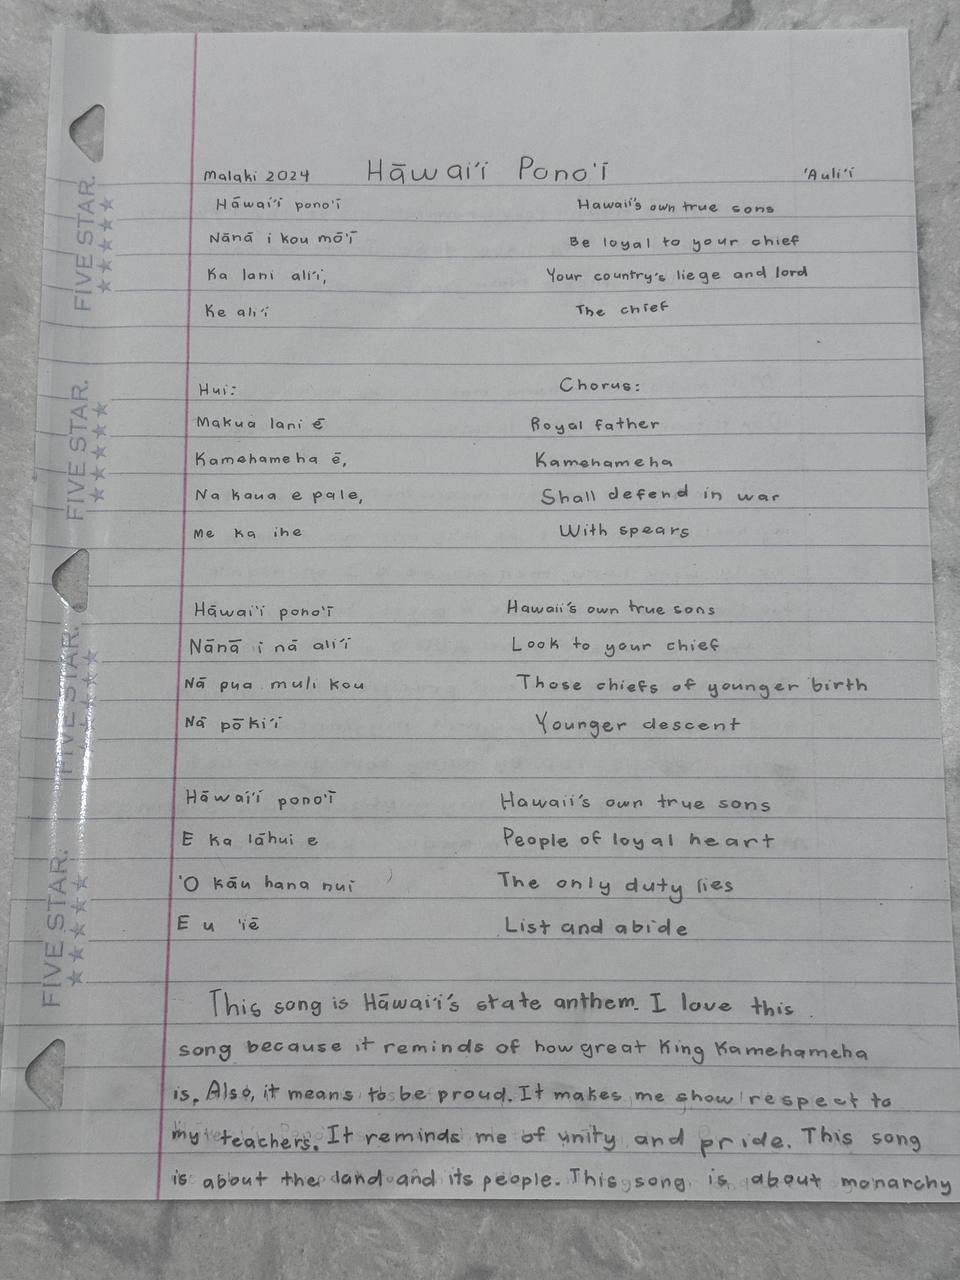 Malaki 2024 Hāwai'i Pono'ī 'Auli'ī
Hāwai'i pono'ī Hawaii's own true sons
Nānā i kou mō'ī Be loyal to your chief
Ka lani ali'i, Your country's liege and lord
Ke ali'i The chief
Hui: Chorus:
Makua lani ē Royal father
Kamehameha ē, Kamehameha
Na kaua e pale, Shall defend in war
Me ka ihe With spears
Hāwai'i pono'ī Hawaii's own true sons
Nānā i nā ali'i Look to your chief
Nā pua muli kou Those chiefs of younger birth
Nā pōki'i Younger descent
Hāwai'i pono'ī Hawaii's own true sons
E ka lāhui e People of loyal heart
'O kāu hana nui The only duty lies
E u 'iē List and abide
This song is Hāwai'i's state anthem. I love this
song because it reminds of how great King Kamehameha
is. Also, it means to be proud. It makes me show respect to
my teachers. It reminds me of unity and pride. This song
is about the land and its people. This song is about monarchy
FIVE STAR.
FIVE STAR.
FIVE STAR.
FIVE STAR.